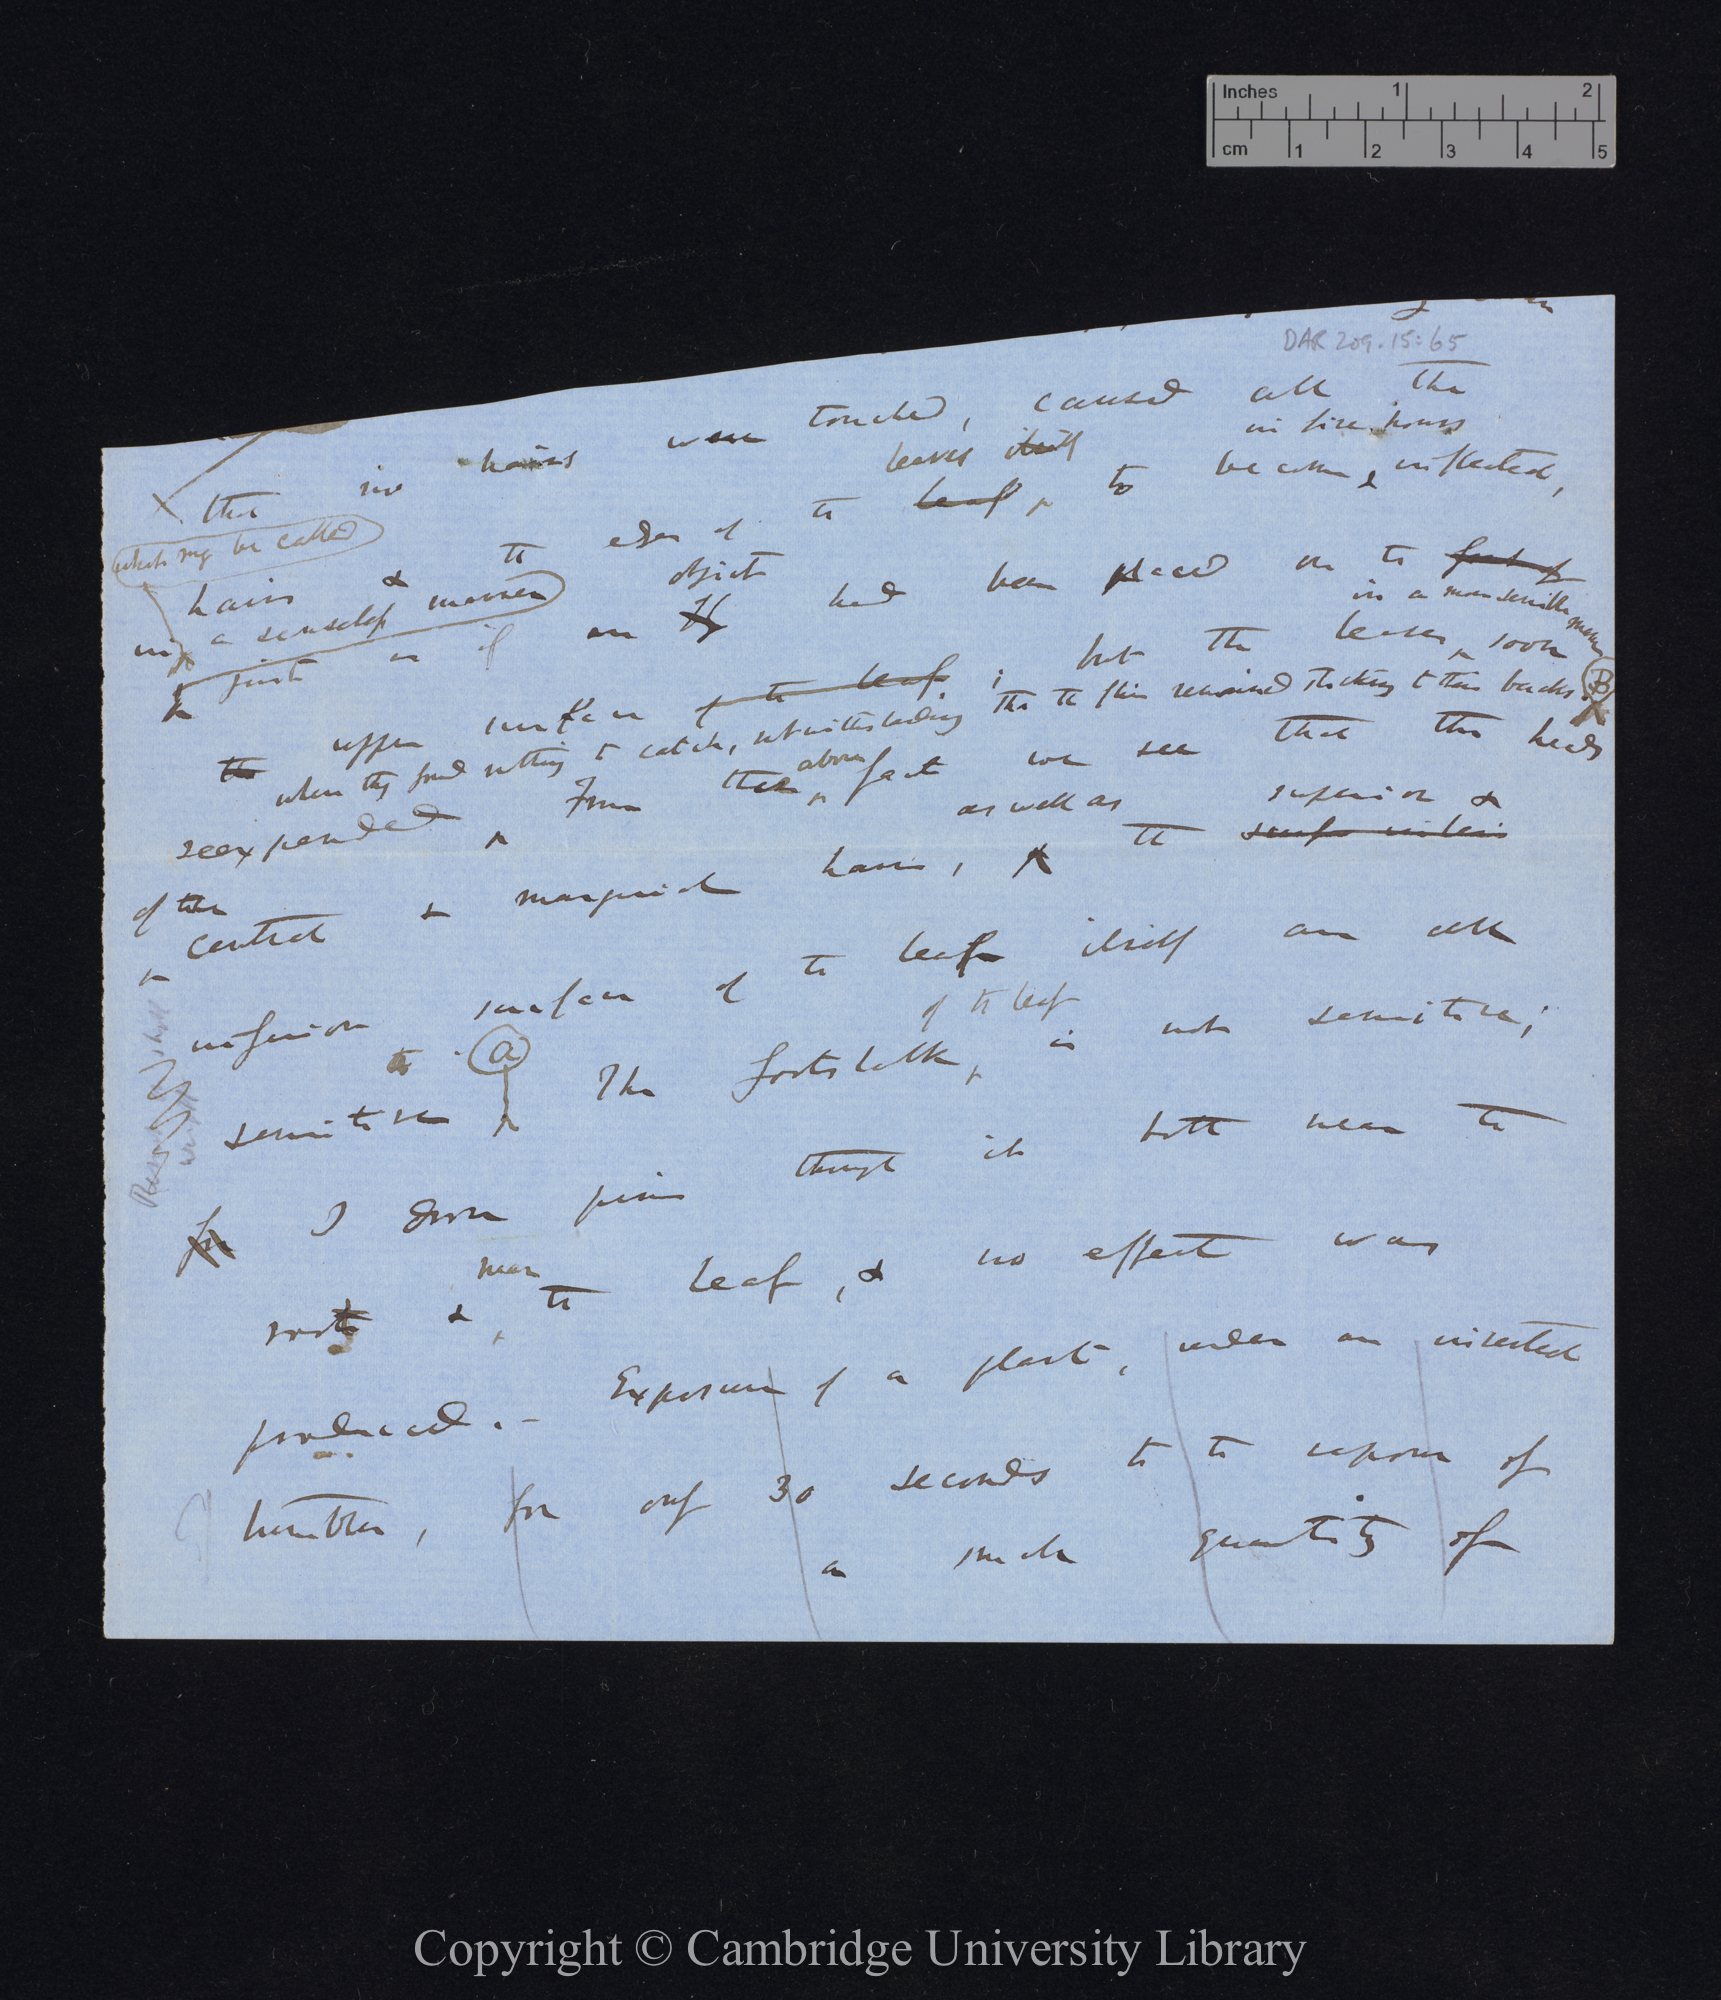 Inches 1 2
cm 1 2 3 4 5
DAR 209.15:65
that no hairs were touched, caused all the
leaves itself in five hours
hairs & the edges of the leaf, to become inflected,
what may be called
in a senseless manner
just as if an object had been placed on the
in a more sensible manner
the upper surface of the leaf; but the leaves soon
B
when they found nothing to catch, notwithstanding that the flies remained sticking to their backs.
reexpanded. From these above facts we see that the heads
of the as well as superior &
central & marginal hairs, the
inferior surface of the leaf itself are all
of the leaf
sensitive a The footstalk, is not sensitive;
for I drove pins through it both near the
near
root & the leaf, & no effect was
produced.— Exposure of a plant, under an inverted
tumbler, for only 30 seconds to the vapour of
a small quantity of
Copyright © Cambridge University Library